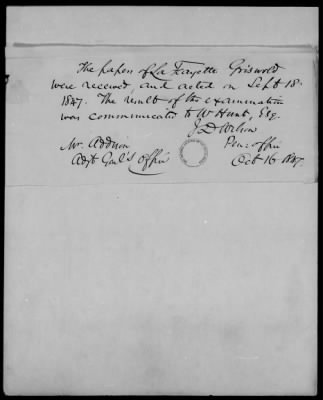 The papers of La Fayette Griswold
were received, and acted on Sept 18.
1847. The result of the examination
was communicated to W Hunt, Esq.
J D Wilson
Mr. Addison Pen: office
Adjt Genl's office Oct 16. 1847.